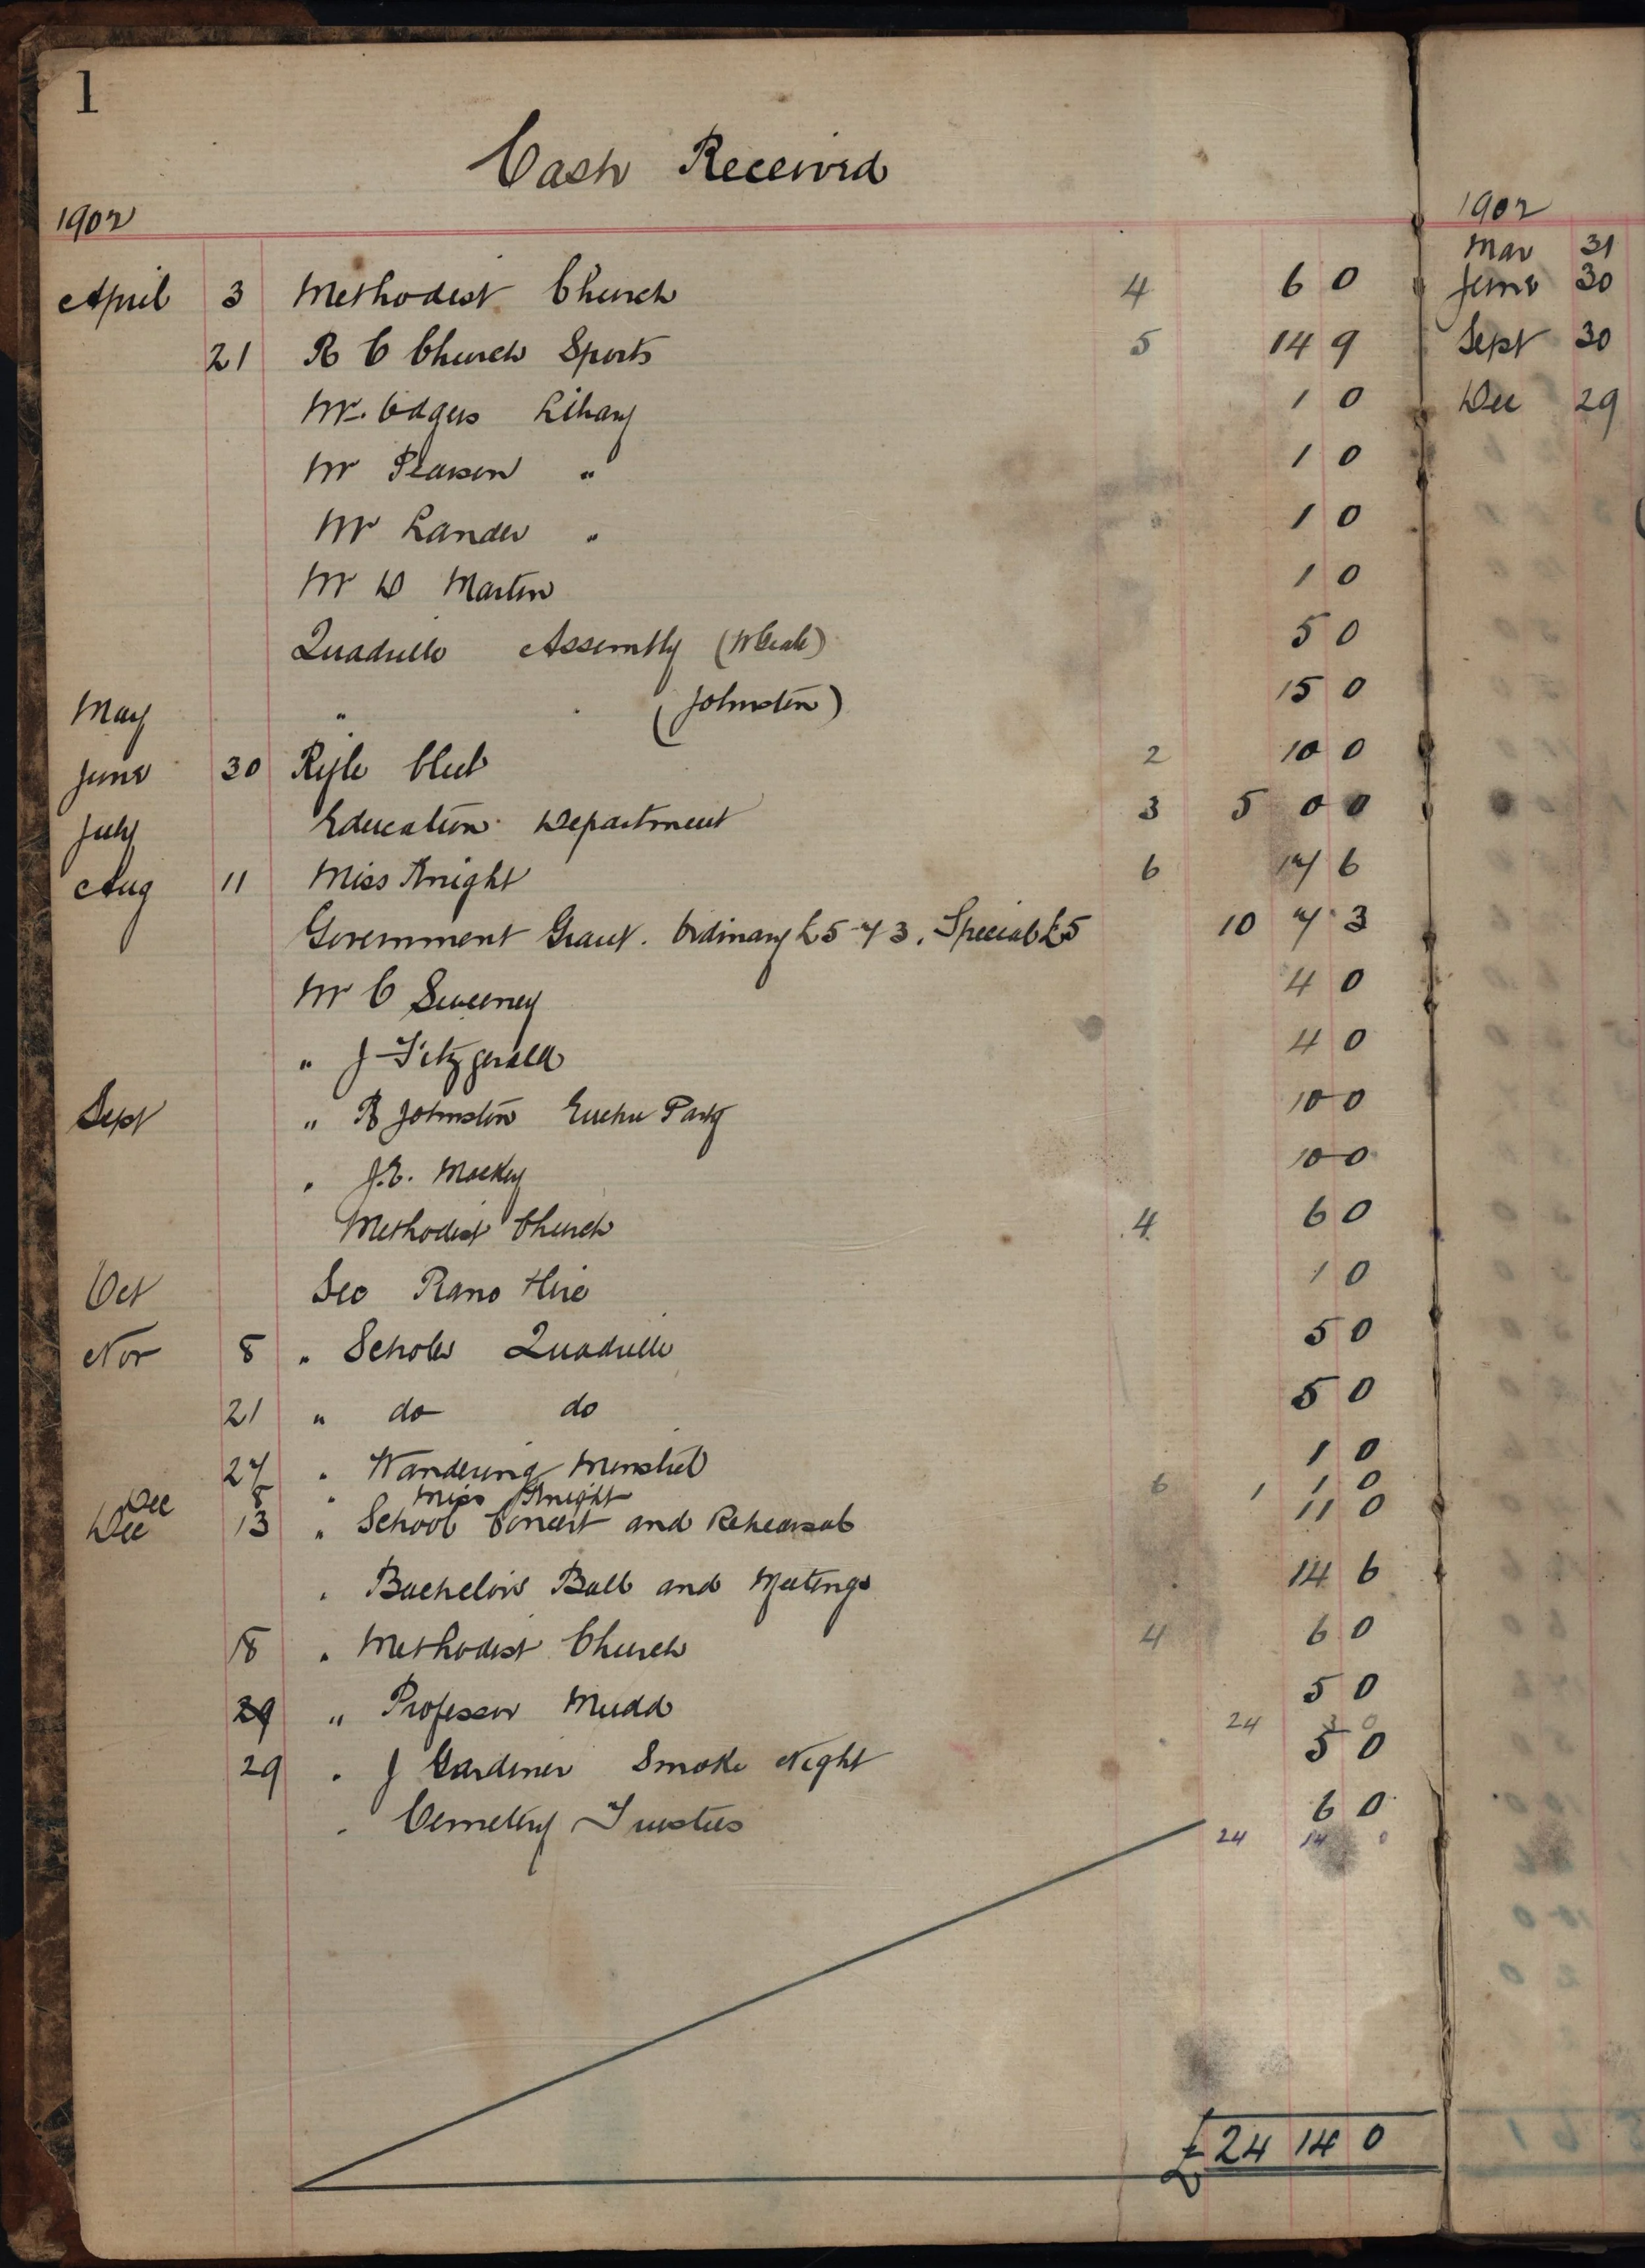 1
Cash Received
1902
April 3 Methodist Church 4 6 0
21 R C Church Sports 5 14 9
Mr. Odgers Library 1 0
Mr Pearson " 1 0
Mr Lander " 1 0
Mr D Martin 1 0
Quadrille Assembly 5 0
May " (Johnston) 15 0
June 30 Rifle Club 2 10 0
July Education Department 3 5 0 0
Aug 11 Miss Knight 6 17 6
Government Grant. Ordinary £5-7 3. Special £5 10 7 3
Mr C Sweeney 4 0
" J Fitzgerald 4 0
Sept " R Johnston Euchre Party 10 0
" J.E. Mackey 10 0
Methodist Church 4 6 0
Oct Geo Piano Hire 1 0
Nov 8 " Scholes Quadrille 5 0
21 " do do 5 0
27 " Wandering Minstrel 1 0
Dec 8 " Miss Knight 6 1 1 0
Dec 13 " School Concert and Rehearsal 11 0
" Bachelors Ball and Meetings 14 6
18 " Methodist Church 4 6 0
29 " Professor Mudd 5 0
24 3 0
29 " J Gardener Smoke Night 5 0
" Cemetery Trustees 6 0
24 14 0
£24 14 0
1902
Mar 31
June 30
Sept 30
Dec 29